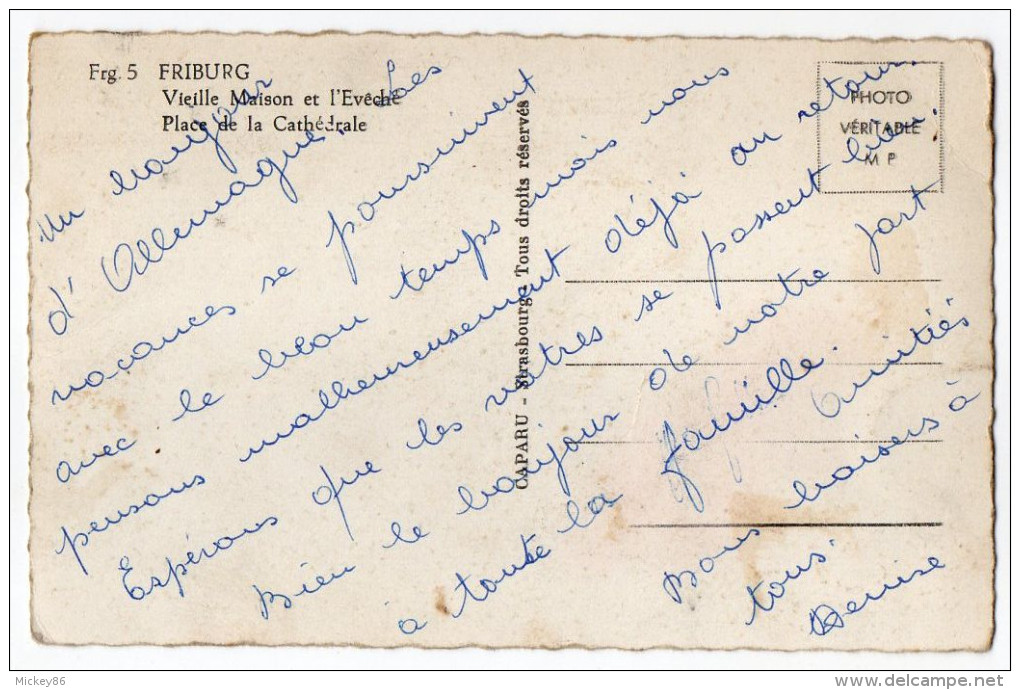 Frg. 5 FRIBURG
Vieille Maison et l'Evêché
Place de la Cathédrale
CAPARU - Strasbourg - Tous droits réservés
PHOTO
VÉRITABLE
M P
Un bonjour
d'Allemagne. Les
vacances se poursuivent
avec le beau temps mais nous
pensons malheureusement déjà au retour.
Espérons que les votres se passent bien.
Bien le bonjour de notre part
à toute la famille. Amitiés
Bons baisers à
tous.
Denise
Mickey86
www.delcampe.net